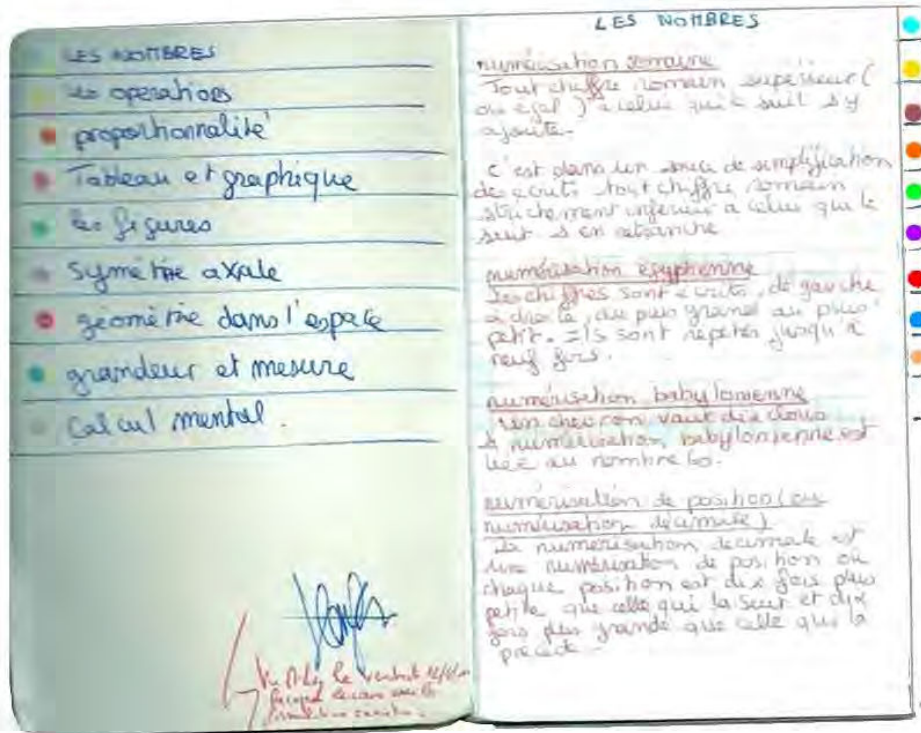 LES NOMBRES
Les operations
proportionnalité
Tableau et graphique
les figures
Symétrie axale
géométrie dans l'espace
grandeur et mesure
Calcul mental.
LES NOMBRES
numérisation romaine
Tout chiffre romain supérieur (
ou égal) à celui qui le suit s'y
ajoute.
C'est dans un souci de simplification
de écrits tout chiffre romain
strictement inférieur a celui qui le
suit s'en retranche
numérisation égyptienne
Les chiffres sont écrits, de gauche
à droite, du plus grand au plus
petit. Ils sont répétés jusqu'à
neuf fois.
numérisation babylonienne
un chevron vaut dix clous
numérisation babylonienne est
liée au nombre 60.
numérisation de position (ou
numérisation décimale)
La numérisation décimale est
une numérisation de position où
chaque position est dix fois plus
petite que celle qui la suit et dix
fois plus grande que celle qui la
précède.
Vu le vendredi